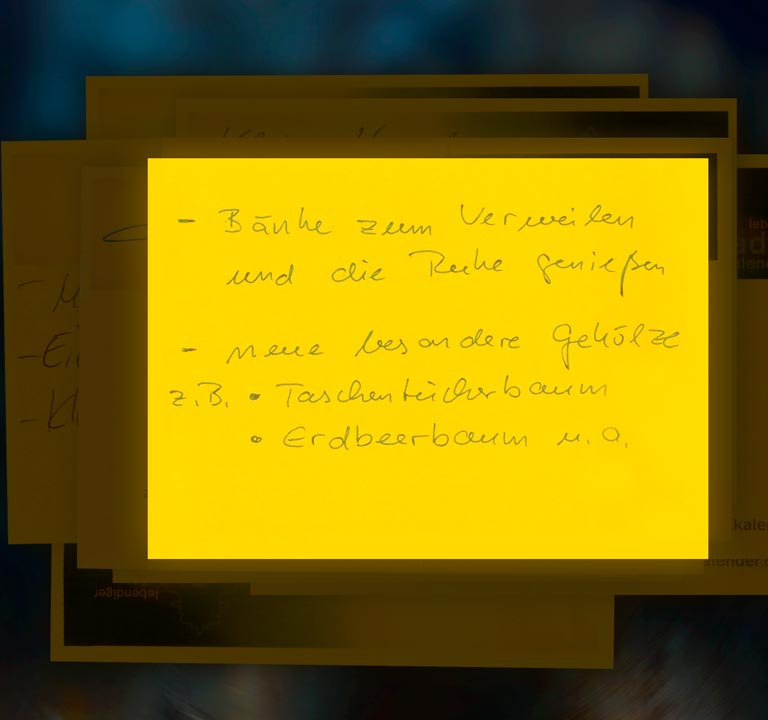 - Bänke zum Verweilen
und die Ruhe genießen
- neue besondere Gehölze
z.B. • Taschentücherbaum
• Erdbeerbaum u.a.
lebendiger